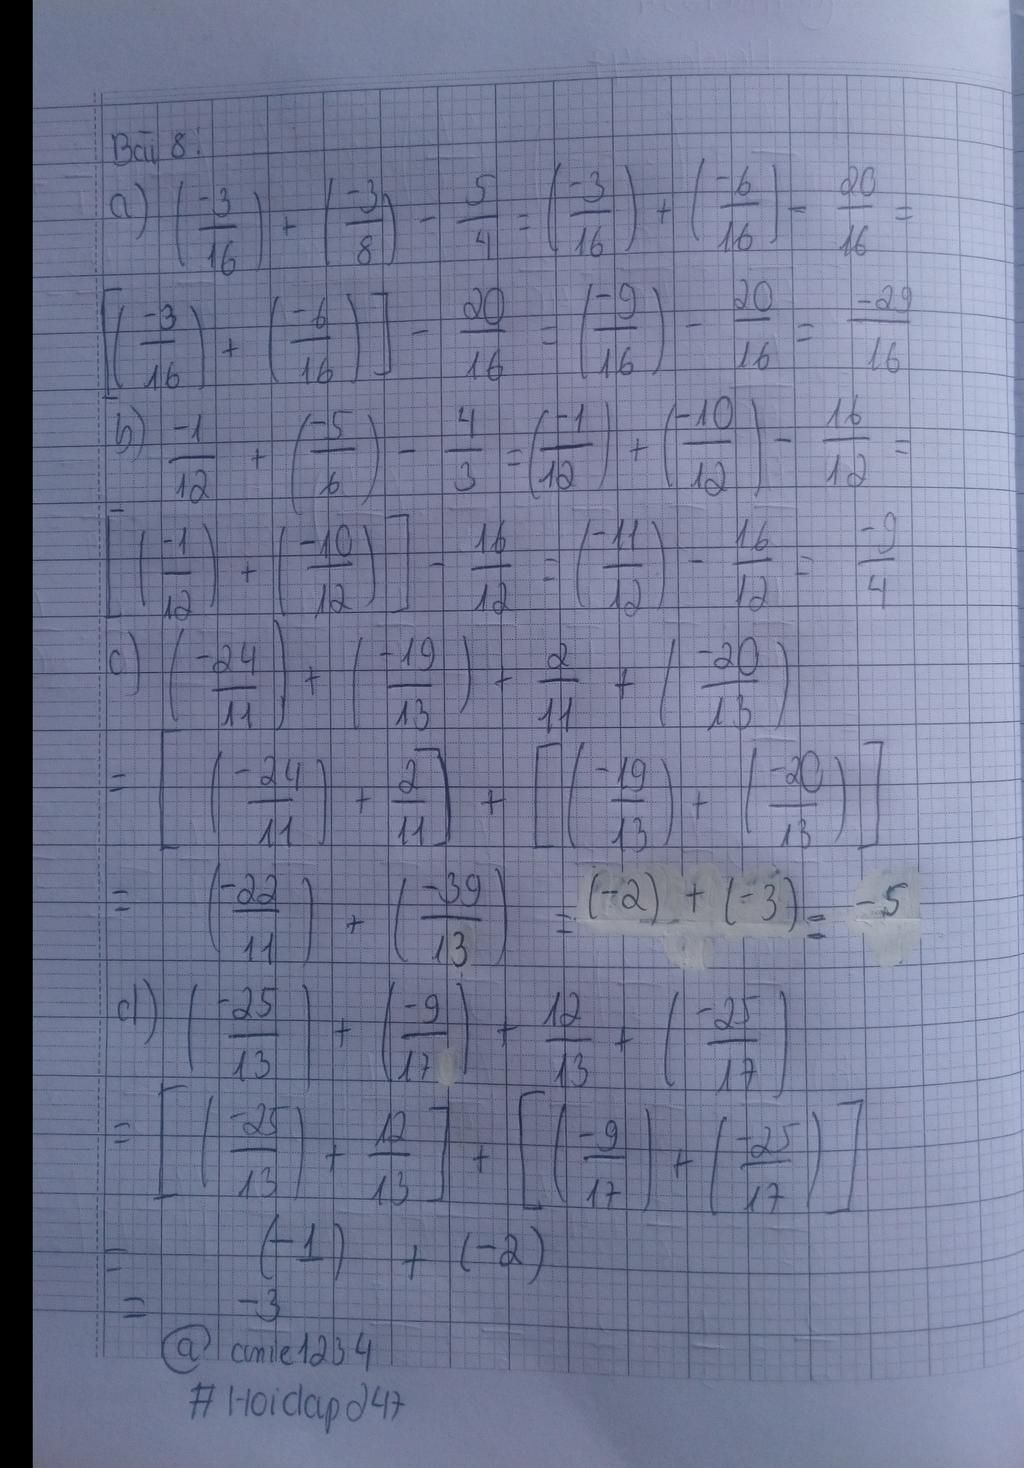 Bài 8:
a) (-3/16) + (-3/8) - 5/4 = (-3/16) + (-6/16) - 20/16 =
[(-3/16) + (-6/16)] - 20/16 = (-9/16) - 20/16 = -29/16
b) -1/12 + (-5/6) - 4/3 = (-1/12) + (-10/12) - 16/12 =
[(-1/12) + (-10/12)] - 16/12 = (-11/12) - 16/12 = -9/4
c) (-24/11) + (-19/13) + 2/11 + (-20/13)
= [(-24/11) + 2/11] + [(-19/13) + (-20/13)]
= (-22/11) + (-39/13) = (-2) + (-3) = -5
d) (-25/13) + (-9/17) + 12/13 + (-25/17)
= [(-25/13) + 12/13] + [(-9/17) + (-25/17)]
= (-1) + (-2)
= -3
#Hoidap247